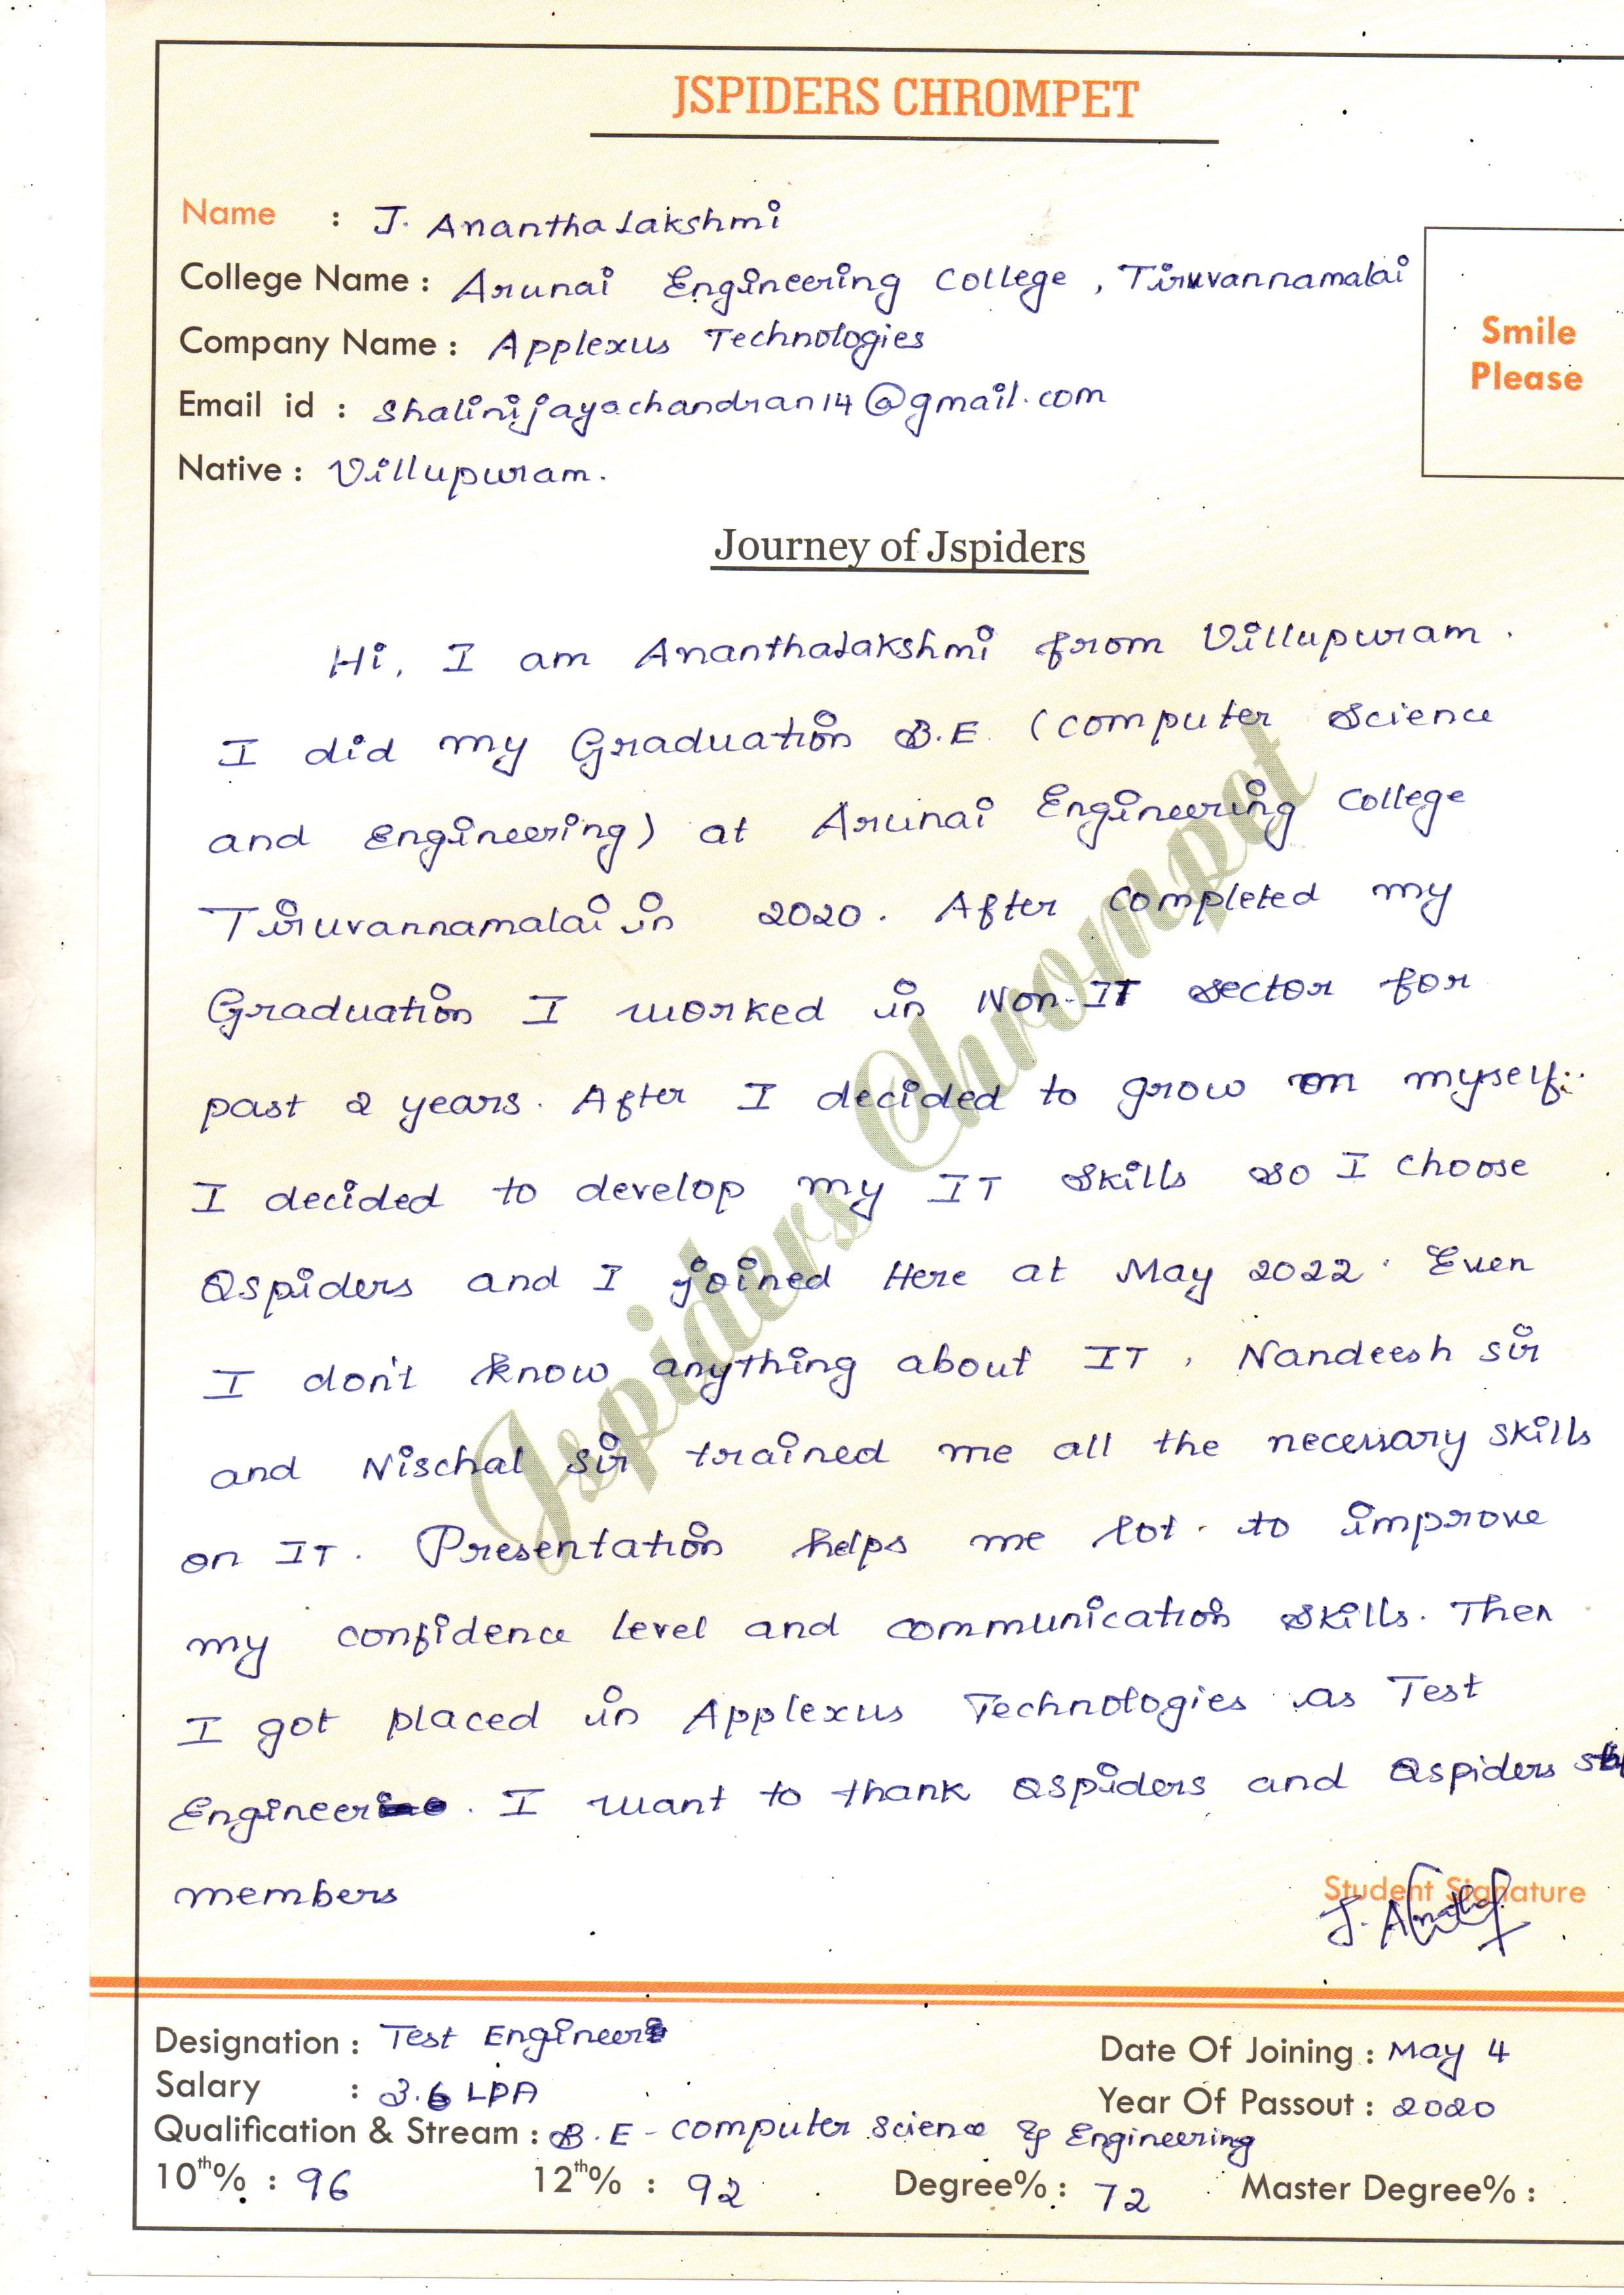 JSPIDERS CHROMPET
Name : J. Anantha Lakshmi
College Name : Arunai Engineering College , Tiruvannamalai
Company Name : Applexus Technologies
Email id : shalinijayachandran14@gmail.com
Native : Villupuram.
Smile
Please
Journey of Jspiders
Hi, I am AnanthaLakshmi from Villupuram .
I did my Graduation B.E (computer Science
and Engineering) at Arunai Engineering College
Tiruvannamalai in 2020. After completed my
Graduation I worked in Non-IT sector for
past 2 years. After I decided to grow on myself.
I decided to develop my IT Skills so I choose
Qspiders and I joined Here at May 2022. Even
I don't know anything about IT, Nandeesh sir
and Nischal sir trained me all the necessary skills
on IT. Presentation helps me lot to improve
my confidence level and communication skills. Then
I got placed in Applexus Technologies as Test
Engineer. I want to thank Qspiders and Qspiders
members
Jspiders Chrompet
Student Signature
Designation : Test Engineer
Date Of Joining : May 4
Salary : 3.6 LPA
Year Of Passout : 2020
Qualification & Stream : B.E - computer Science & Engineering
10th% : 96 12th% : 92 Degree% : 72 Master Degree% :